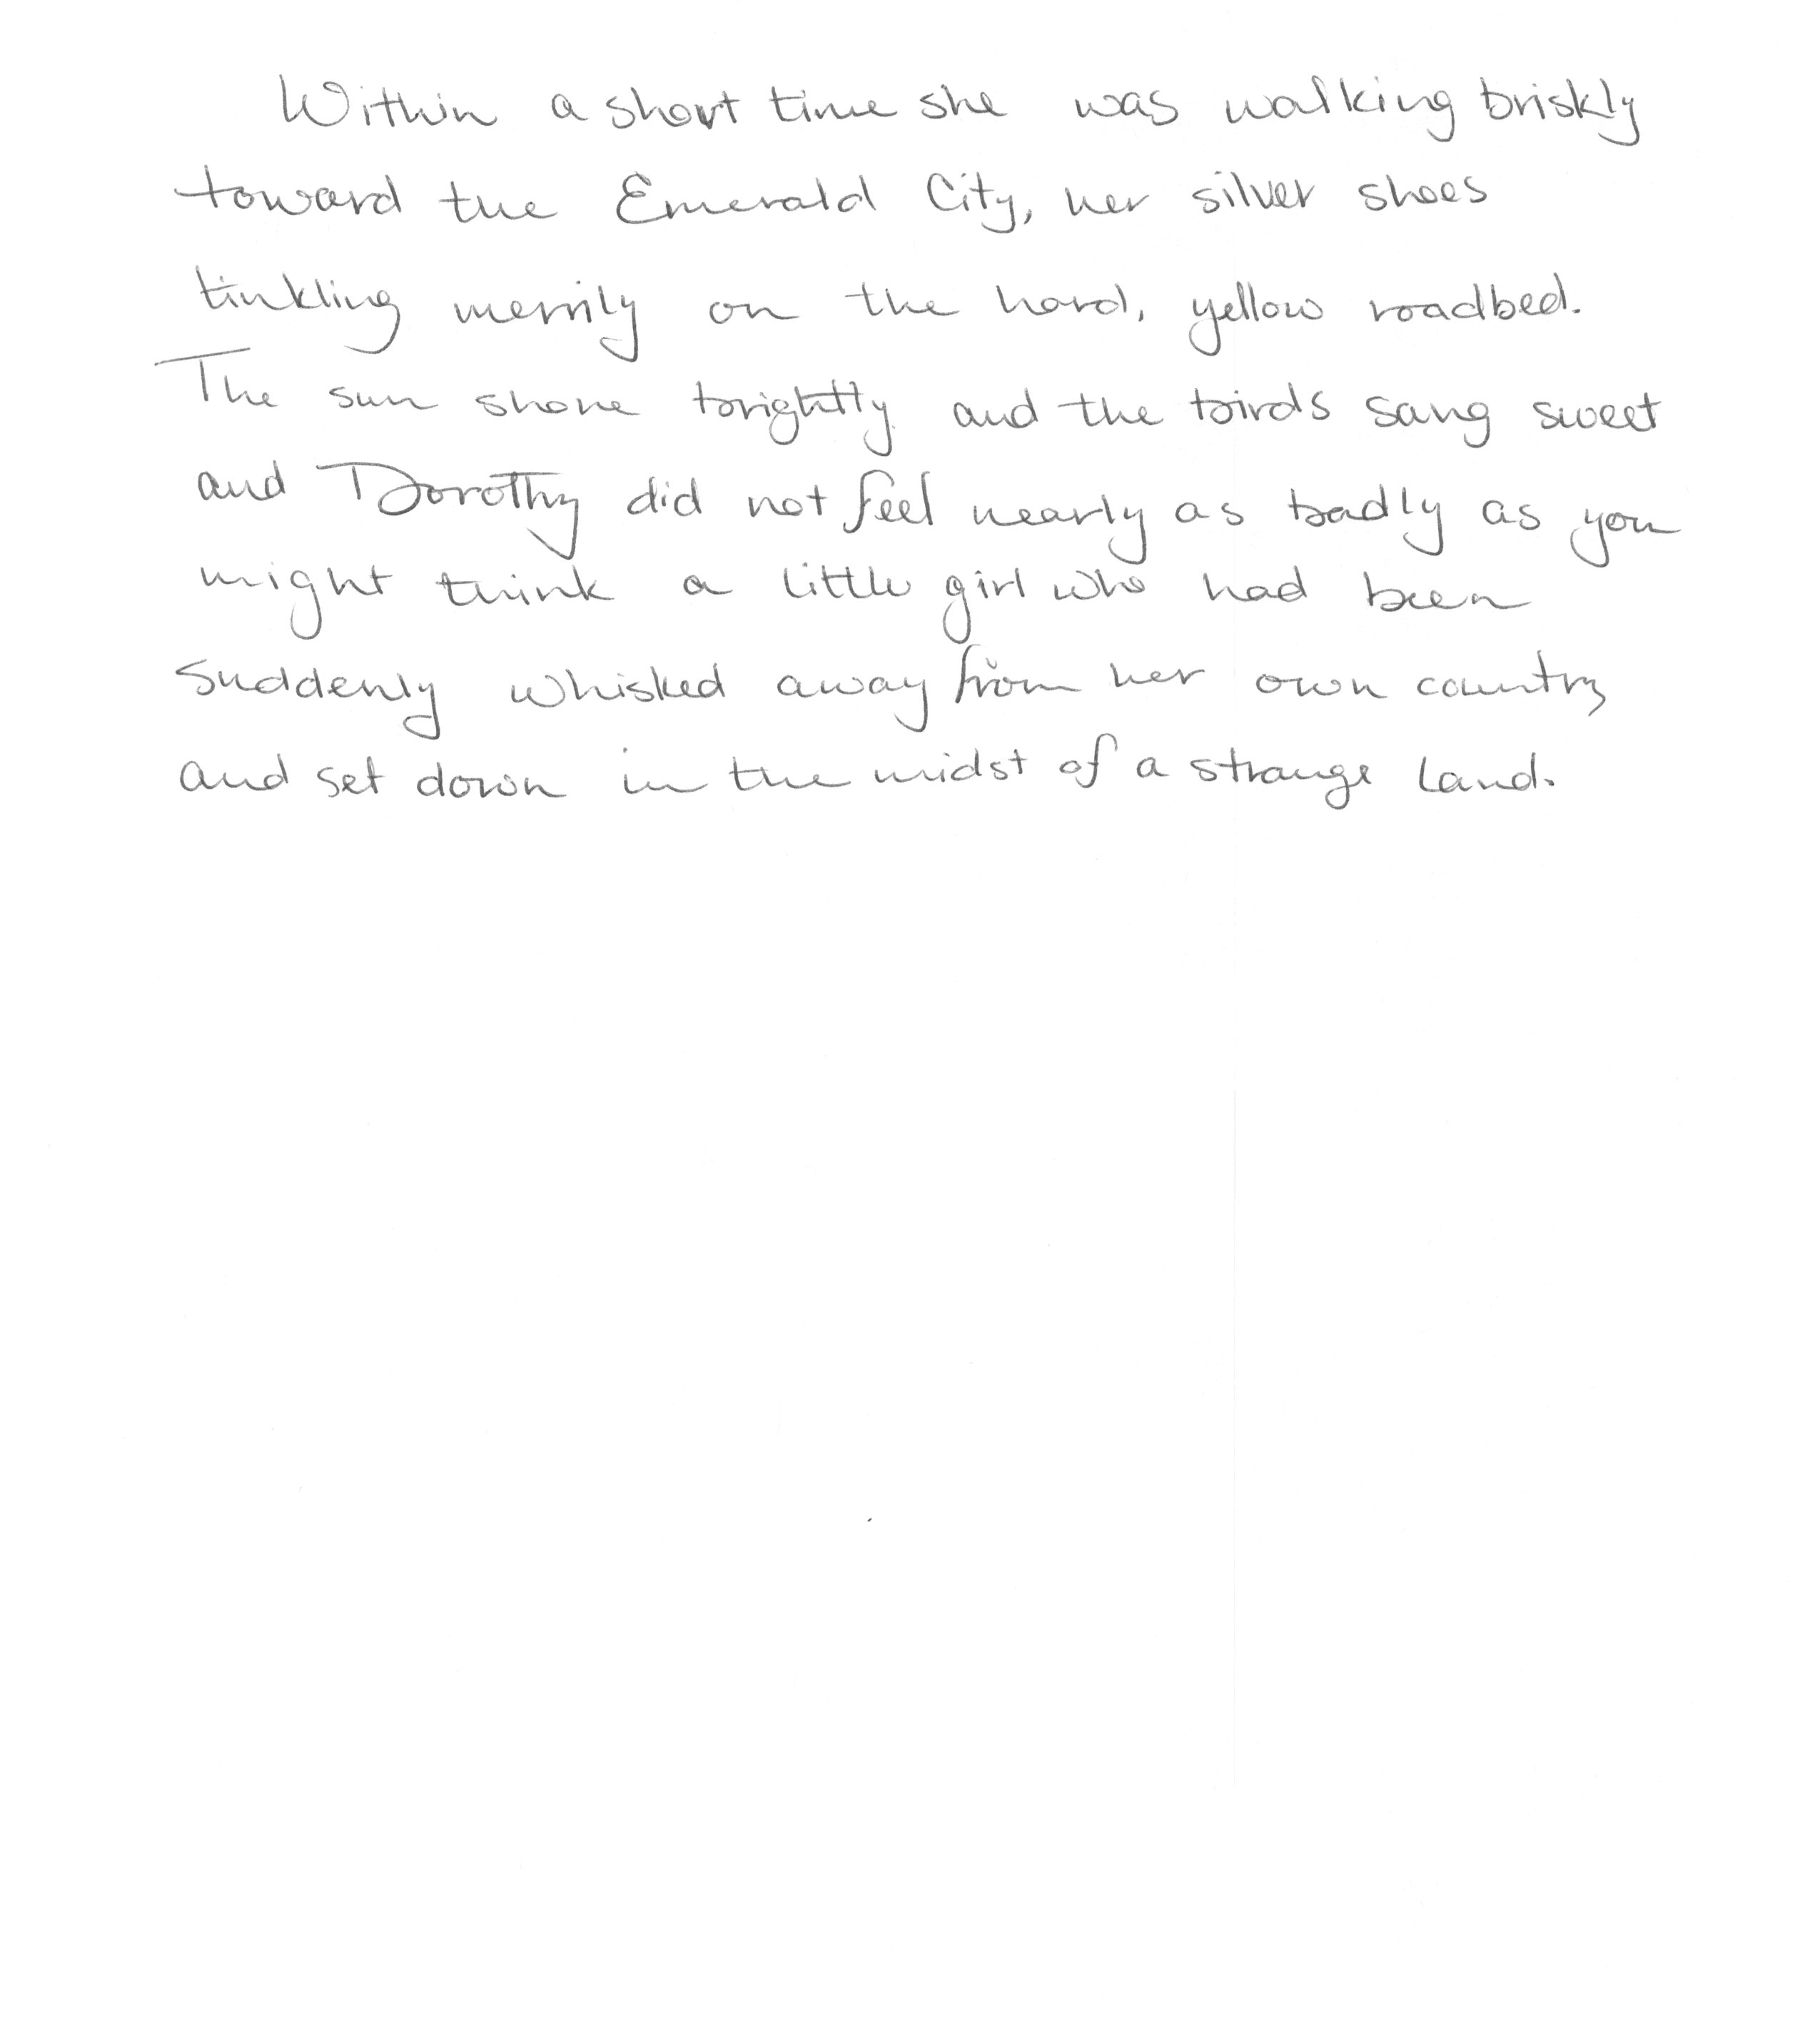 Within a short time she was walking briskly
toward the Emerald City, her silver shoes
tinkling merrily on the hard, yellow roadbed.
The sun shone brightly and the birds sang sweet
and Dorothy did not feel nearly as badly as you
might think a little girl who had been
suddenly whisked away from her own country
and set down in the midst of a strange land.